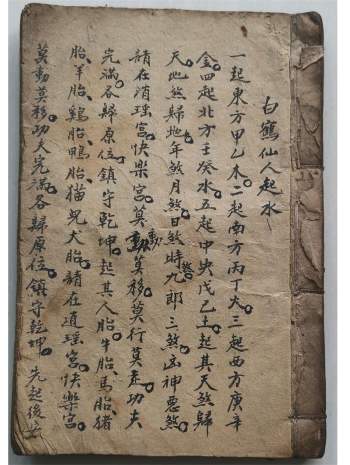 白鶴仙人起水
一起東方甲乙木。二起南方丙丁火。三起西方庚辛
金。四起北方壬癸水。五起中央戊己土。起其天煞歸
天。地煞歸地。年煞月煞日煞時煞。九郎三煞。凶神惡煞
請在道瑤宮。快樂宮。莫動莫移。莫行莫走。功夫
完滿。各歸原位。鎮守乾坤。起其人胎。牛胎、馬胎、猪
胎、羊胎、鷄胎、鴨胎、猫兒犬胎。請在道瑤宮。快樂宮。
莫動莫移。功夫完滿。各歸原位。鎮守乾坤。先起後安